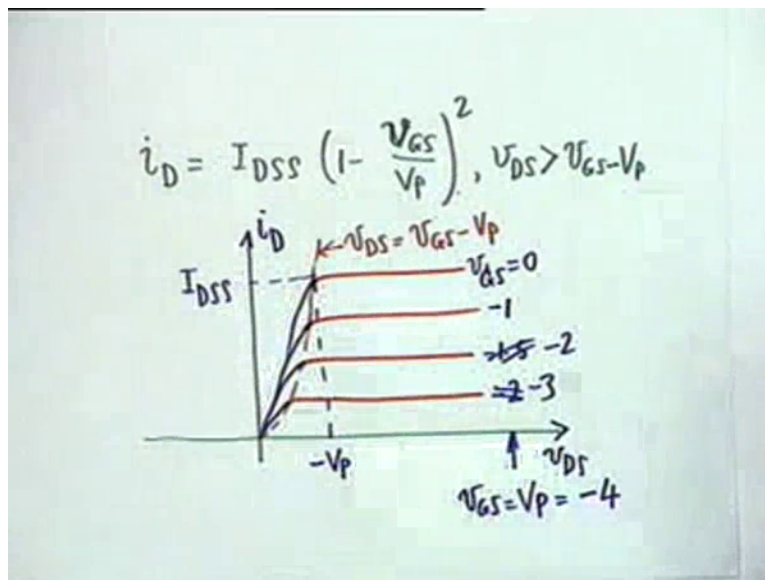 i_D = I_DSS (1 - v_GS/V_P)^2, v_DS > v_GS - V_P
i_D
v_DS = v_GS - V_P
I_DSS
v_GS = 0
-1
-2
-3
-V_P
v_DS
v_GS = V_P = -4